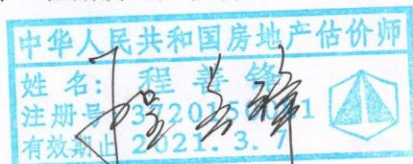 中华人民共和国房地产估价师
姓名：程善锋
注册号
有效期止2021.3.7